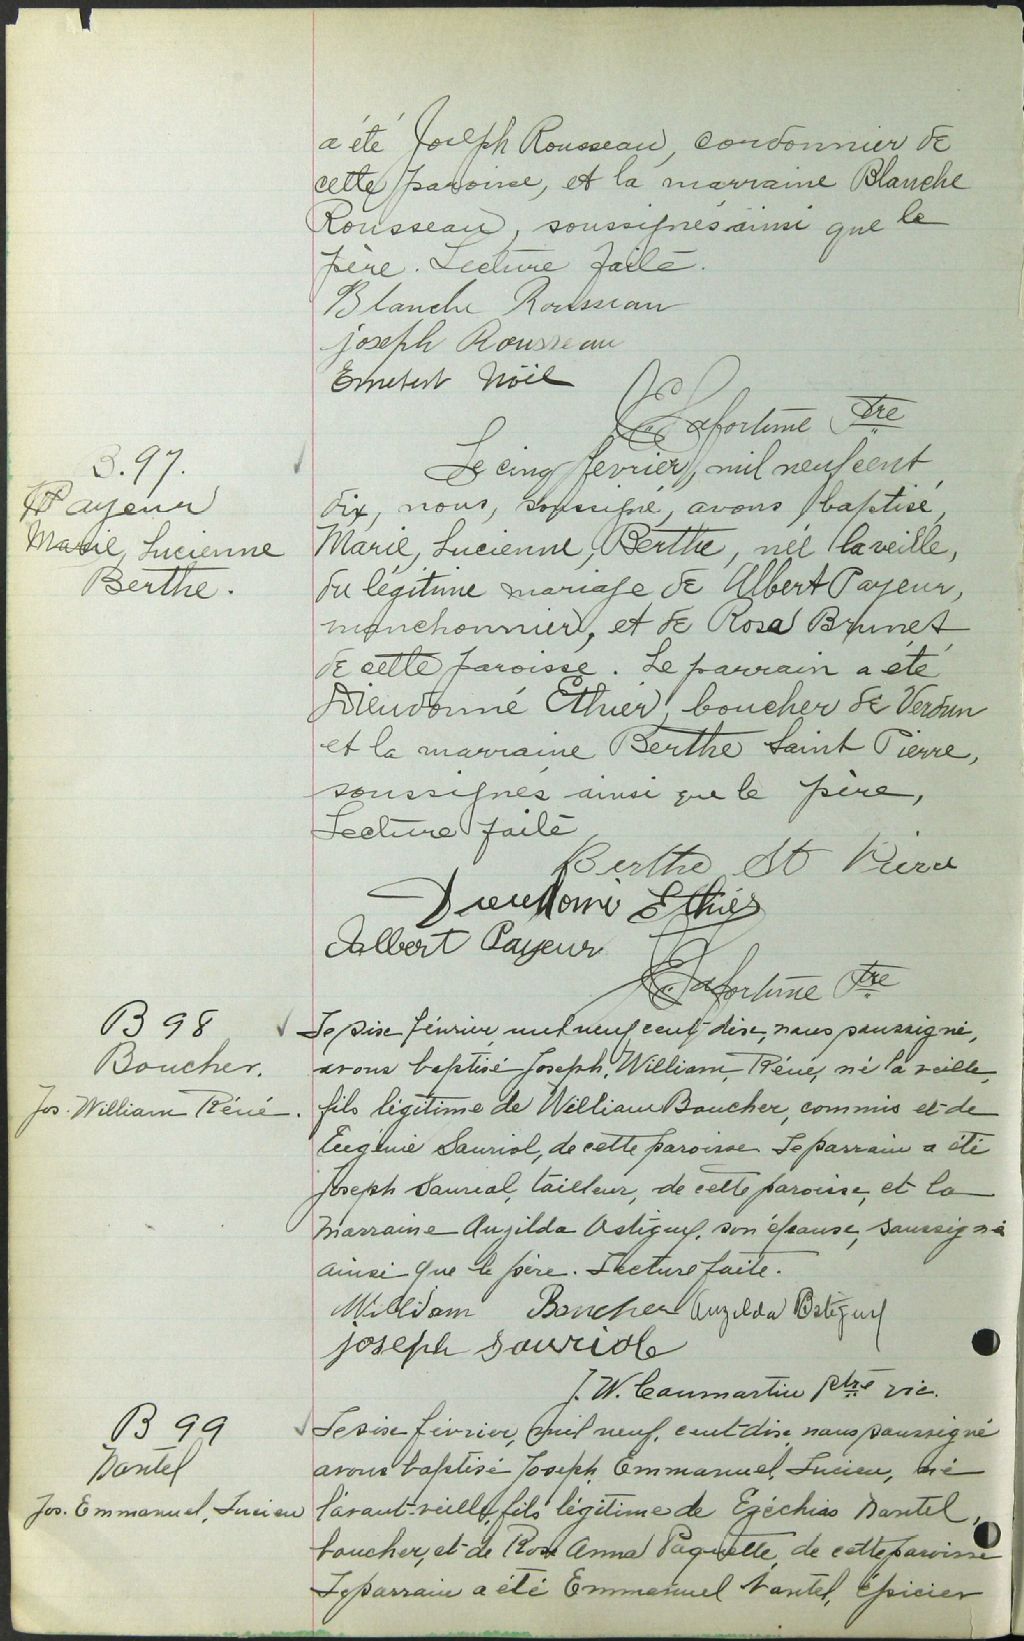 a été Joseph Rousseau, cordonnier de
cette paroisse, et la marraine Blanche
Rousseau, soussignés ainsi que le
père. Lecture faite.
Blanche Rousseau
joseph Rousseau
Ernest Nöil
Lafortune Ptre
B. 97.
Payeur
Marie, Lucienne
Berthe.
Le cinq février, mil neuf cent
dix, nous, soussigné, avons baptisé,
Marie, Lucienne, Berthe, née la veille,
du légitime mariage de Albert Payeur,
manchonnier, et de Rosa Brunet
de cette paroisse. Le parrain a été
Dieudonné Ethier, boucher de Verdun
et la marraine Berthe Saint Pierre,
soussignés ainsi que le père,
Lecture faite
Berthe St Pierre
Dieudonné Ethier
Albert Payeur
Lafortune Ptre
B 98
Boucher.
Jos. William Réné.
Le six février, mil neuf cent-dix, nous soussigné,
avons baptisé Joseph, William, Réné, né la veille,
fils légitime de William Boucher, commis et de
Eugénie Sauriol, de cette paroisse Le parrain a été
Joseph Sauriol, tailleur, de cette paroisse, et la
marraine Auzilda Ostiguy, son épouse, soussigné
ainsi que le père. Lecture faite.
William Boucher Auzilda Ostiguy
joseph Sauriole
J. W. Caumartin ptre vic.
B 99
Nantel
Jos. Emmanuel, Lucien
Le six février, mil neuf, cent-dix, nous soussigné
avons baptisé Joseph, Emmanuel, Lucien, né
l'avant-veille, fils légitime de Ezéchias Nantel,
boucher, et de Rose Anna Paquette, de cette paroisse
Le parrain a été Emmanuel Nantel, épicier